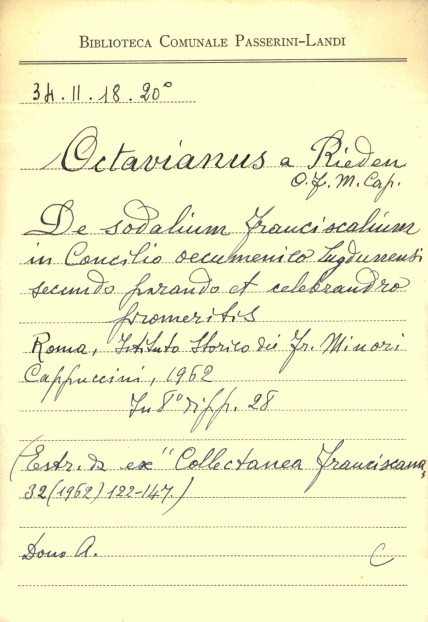 BIBLIOTECA COMUNALE PASSERINI-LANDI
34.II.18.20°
Octavianus a Rieden
O.F.M.Cap.
De sodalium franciscalium
in Concilio oecumenico Lugdunensi
secundo parando et celebrandro
promeritis
Roma, Istituto Storico dei Fr. Minori
Cappuccini, 1962
In 8° di pp. 28
(Estr. da ex "Collectanea franciscana,
32(1962)122-147.)
Dono A.
C